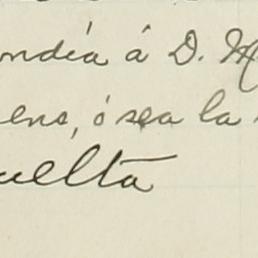 ondía á D. M
ens, ó sea la
uelta